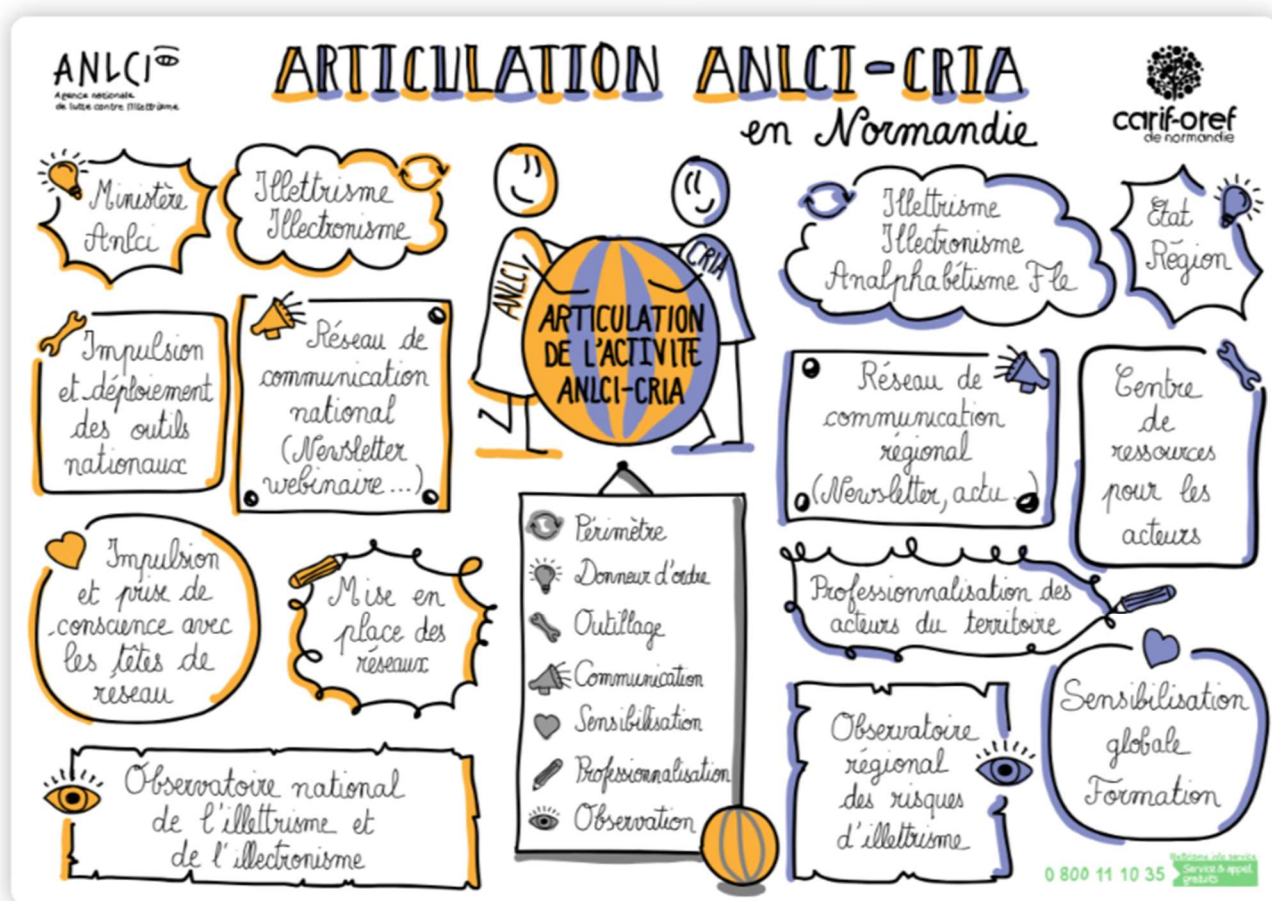 ANLCI
Agence nationale
de lutte contre l'illettrisme
ARTICULATION ANLCI-CRIA
en Normandie
carif-oref
de normandie
Ministère
Anlci
Illettrisme
Illectronisme
Impulsion
et déploiement
des outils
nationaux
Réseau de
communication
national
(Newsletter
webinaire...)
Impulsion
et prise de
conscience avec
les têtes de
réseau
Mise en
place des
réseaux
Observatoire national
de l'illettrisme et
de l'illectronisme
ANLCI
CRIA
ARTICULATION
DE L'ACTIVITE
ANLCI-CRIA
Périmètre
Donneur d'ordre
Outillage
Communication
Sensibilisation
Professionnalisation
Observation
Illettrisme
Illectronisme
Analphabétisme Fle
Etat
Région
Réseau de
communication
régional
(Newsletter, actu...)
Centre
de
ressources
pour les
acteurs
Professionnalisation des
acteurs du territoire
Observatoire
régional
des risques
d'illettrisme
Sensibilisation
globale
Formation
Illettrisme info service
0 800 11 10 35
Service & appel
gratuits